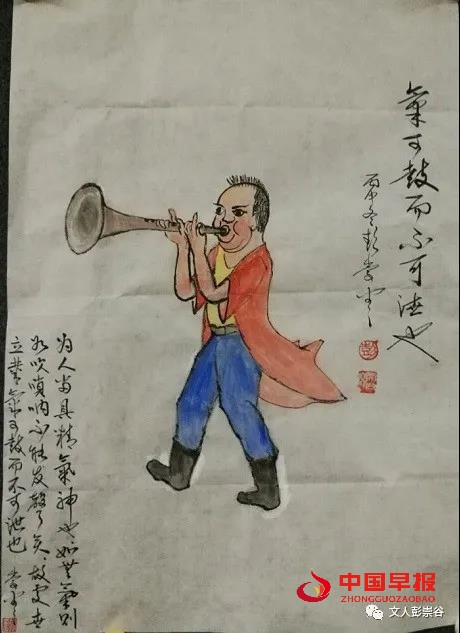 氣可鼓而不可泄也
丙申冬彭崇谷
为人当具精氣神也如無氣则
如吹嗩呐不能发聲了矣故處世
立業氣可鼓而不可泄也 崇谷
中国早报
ZHONGGUOZAOBAO
文人彭崇谷